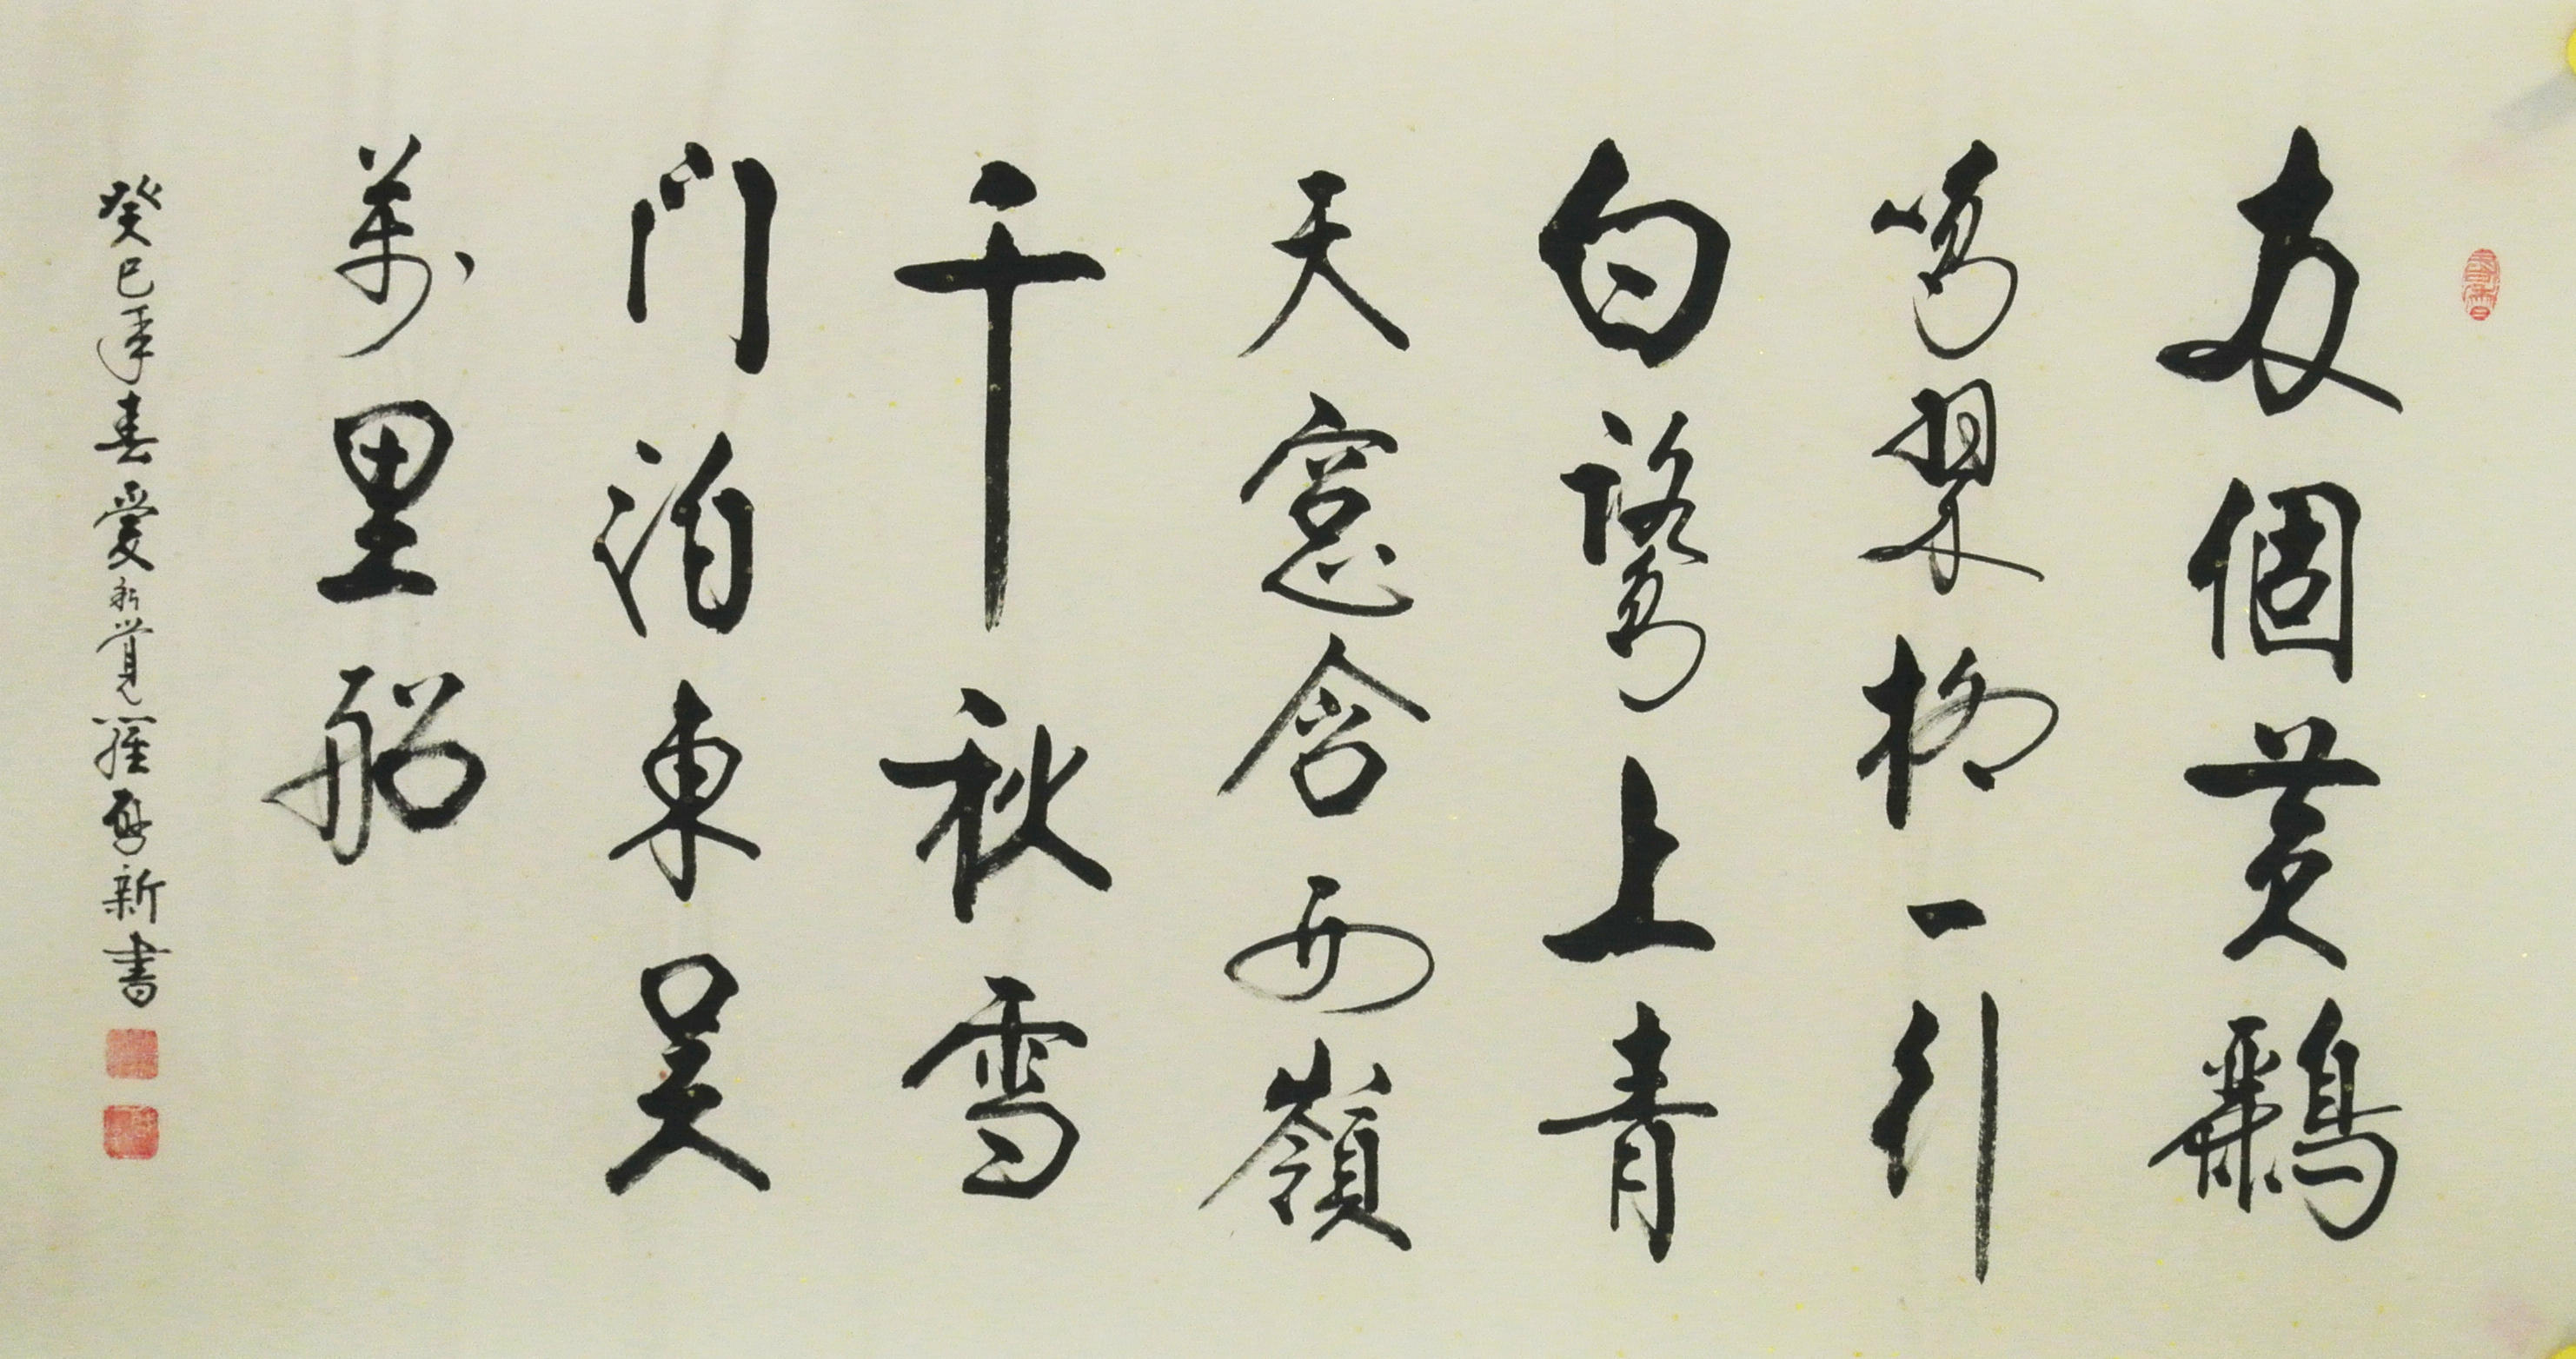 兩個黃鸝
鳴翠柳一行
白鷺上青
天窻含西嶺
千秋雪
門泊東吳
萬里船
癸巳年春愛新覺羅啓新書